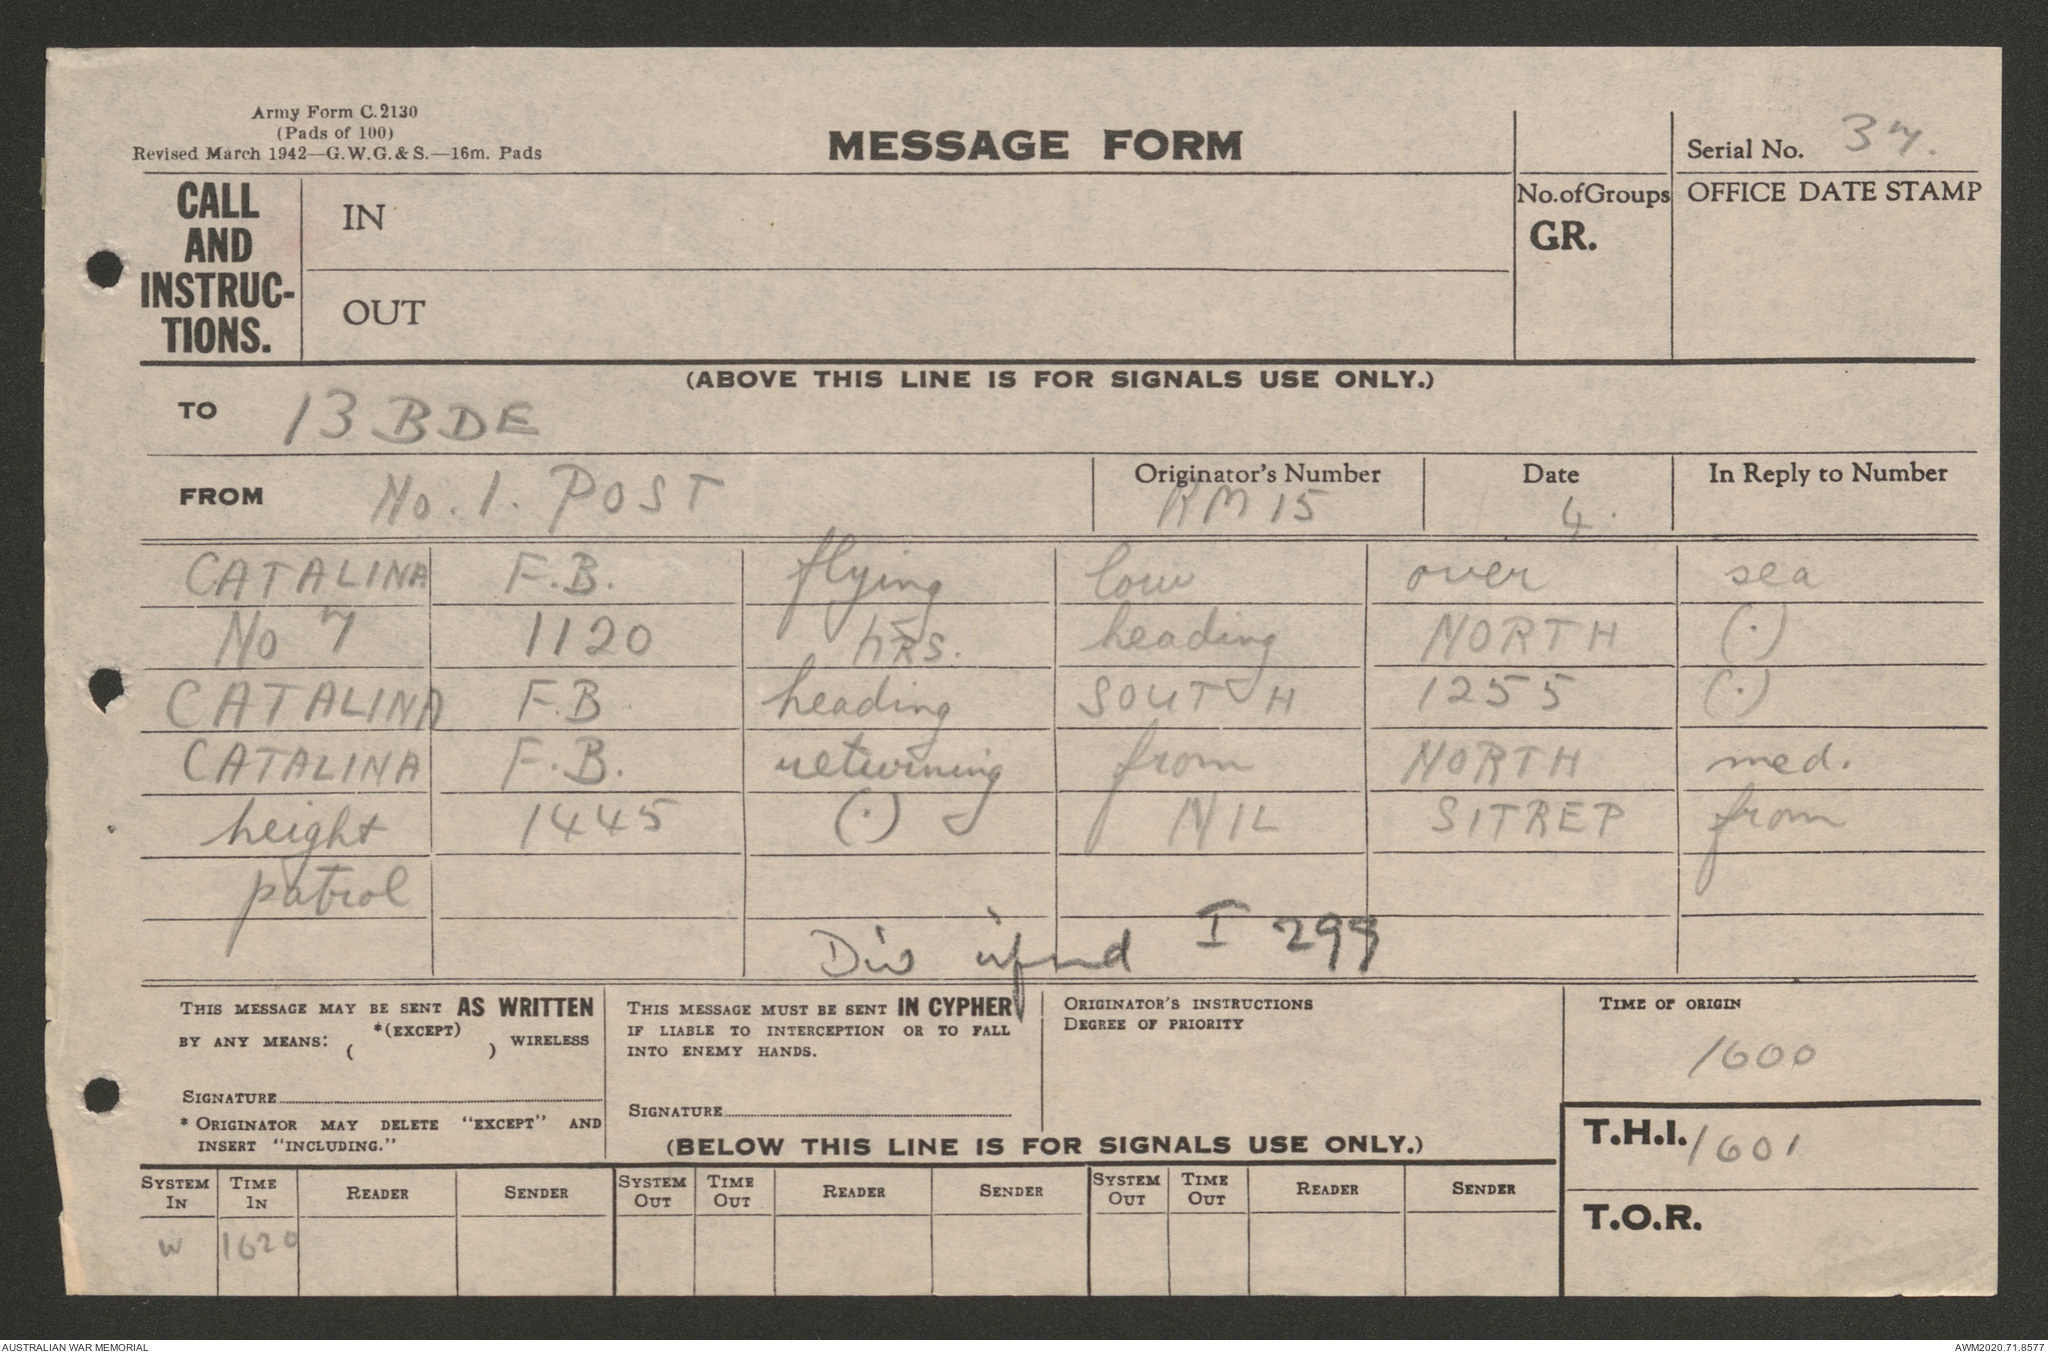 Army Form C.2130
(Pads of 100)
Revised March 1942—G.W.G.&S.—16m. Pads
MESSAGE FORM
Serial No. 37.
CALL AND INSTRUC-TIONS.
IN
OUT
No. of Groups
GR.
OFFICE DATE STAMP
(ABOVE THIS LINE IS FOR SIGNALS USE ONLY.)
TO 13 BDE
FROM No. 1. POST
Originator's Number RM 15
Date 4.
In Reply to Number
CATALINA F.B. flying low over sea
No 7 1120 hRS. heading NORTH (.)
CATALINA F.B heading SOUTH 1255 (.)
CATALINA F.B. returning from NORTH med.
height 1445 (.) NIL SITREP from
patrol
Div infmd I 299
THIS MESSAGE MAY BE SENT AS WRITTEN
BY ANY MEANS: *(EXCEPT) ( ) WIRELESS
SIGNATURE
* ORIGINATOR MAY DELETE "EXCEPT" AND
INSERT "INCLUDING."
THIS MESSAGE MUST BE SENT IN CYPHER
IF LIABLE TO INTERCEPTION OR TO FALL
INTO ENEMY HANDS.
SIGNATURE
ORIGINATOR'S INSTRUCTIONS
DEGREE OF PRIORITY
TIME OF ORIGIN
1600
(BELOW THIS LINE IS FOR SIGNALS USE ONLY.)
T.H.I. 1601
T.O.R.
SYSTEM IN TIME IN READER SENDER SYSTEM OUT TIME OUT READER SENDER SYSTEM OUT TIME OUT READER SENDER
W 1620
AUSTRALIAN WAR MEMORIAL
AWM2020.71.8577